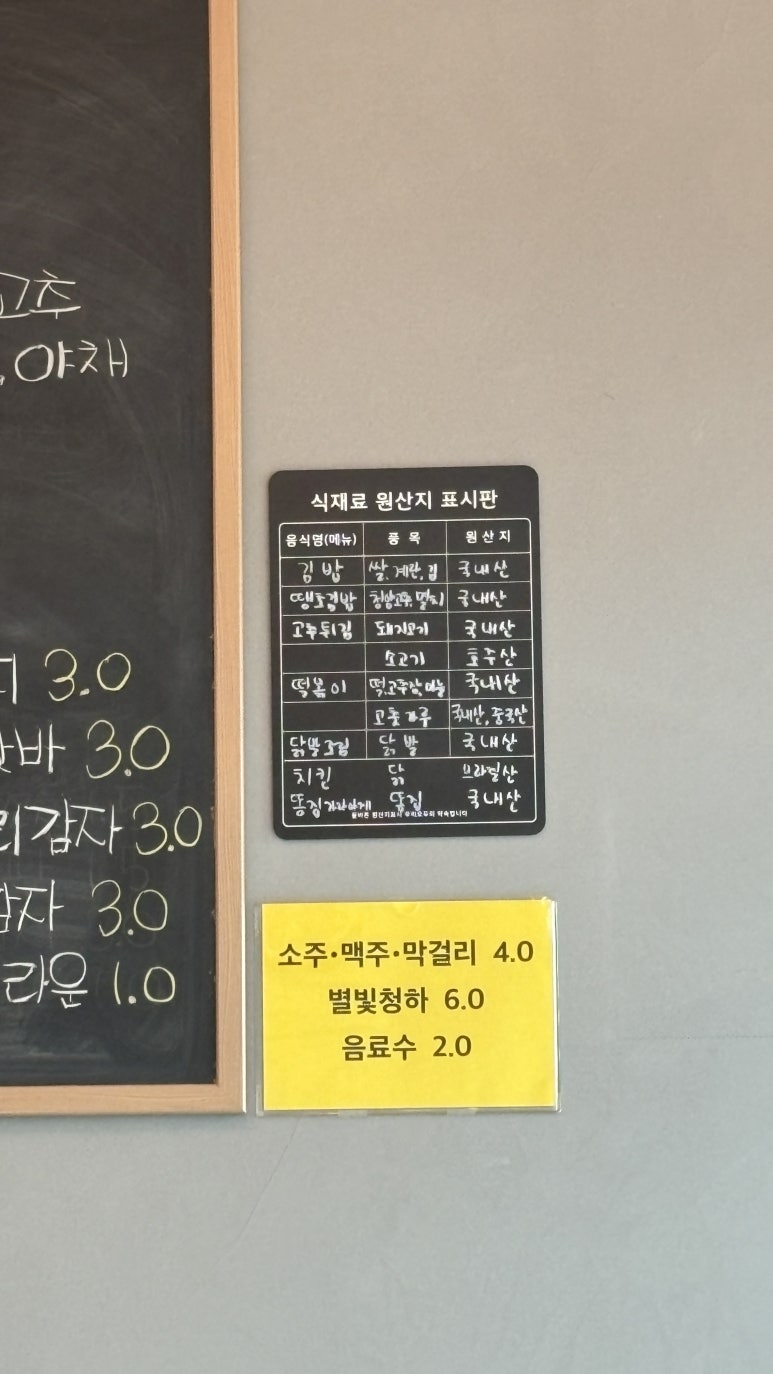 고추
야채
3.0
바 3.0
감자 3.0
감자 3.0
라운 1.0
식재료 원산지 표시판
음식명(메뉴) 품목 원산지
김밥 쌀, 계란, 김 국내산
땡초김밥 청양고추, 멸치 국내산
고추튀김 돼지고기 국내산
소고기 호주산
떡볶이 떡, 고추장, 마늘 국내산
고춧가루 국내산, 중국산
닭발 닭발 국내산
치킨 닭 브라질산
똥집 똥집 국내산
올바른 원산지표시 우리모두의 약속입니다
소주·맥주·막걸리 4.0
별빛청하 6.0
음료수 2.0